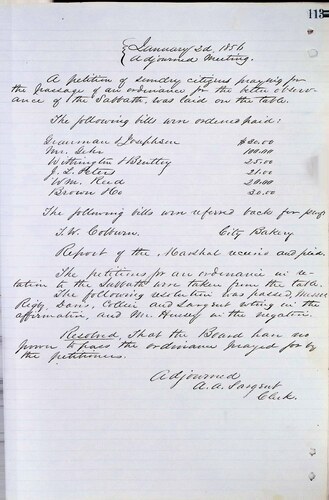 113
January 2d, 1856
Adjourned Meeting.
A petition of sundry citizens praying for
the passage of an ordinance for the better observ-
ance of the Sabbath, was laid on the table.
The following bills were ordered paid:
Dearman & Josephson $20.00
Mr. Lehr 100.00
Withington & Bentley 25.00
J. L. Peters 21.00
Wm. Reed 20.00
Brown & Co 20.00
The following bills were referred back for
T. W. Colburn. City Bakery
Report of the Marshal and
The petitions for an ordinance in re-
lation to the Sabbath were taken from the table.
The following resolution was passed, Messrs
Rigby, Dane, Collin and Sargent voting in the
affirmative, and Mr. Hussey in the negative.
Resolved, That the Board has no
power to pass the ordinance prayed for by
the petitioners.
Adjourned
A. A. Sargent
Clerk.